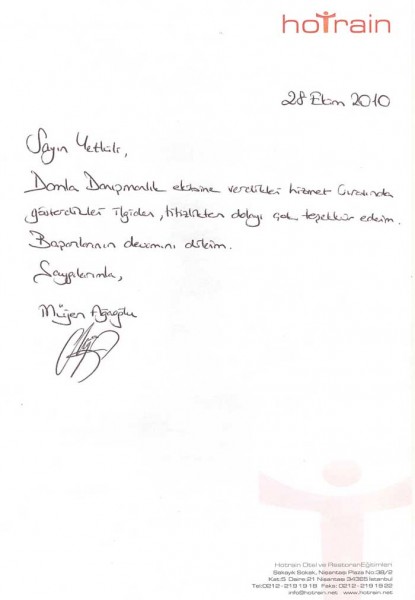 hotrain
28 Ekim 2010
Sayın Yetkili,
Damla Danışmanlık ekibine verdikleri hizmet sırasında
gösterdikleri ilgiden, titizlikten dolayı çok teşekkür ederim.
Başarılarının devamını dilerim.
Saygılarımla,
Müjen Ağaoğlu
Hotrain Otel ve Restoran Eğitimleri
Sakayık Sokak, Nisantası Plaza No:38/2
Kat:5 Daire:21 Nisantası 34365 İstanbul
Tel:0212 - 219 19 18 Faks: 0212 - 219 19 22
info@hotrain.net www.hotrain.net